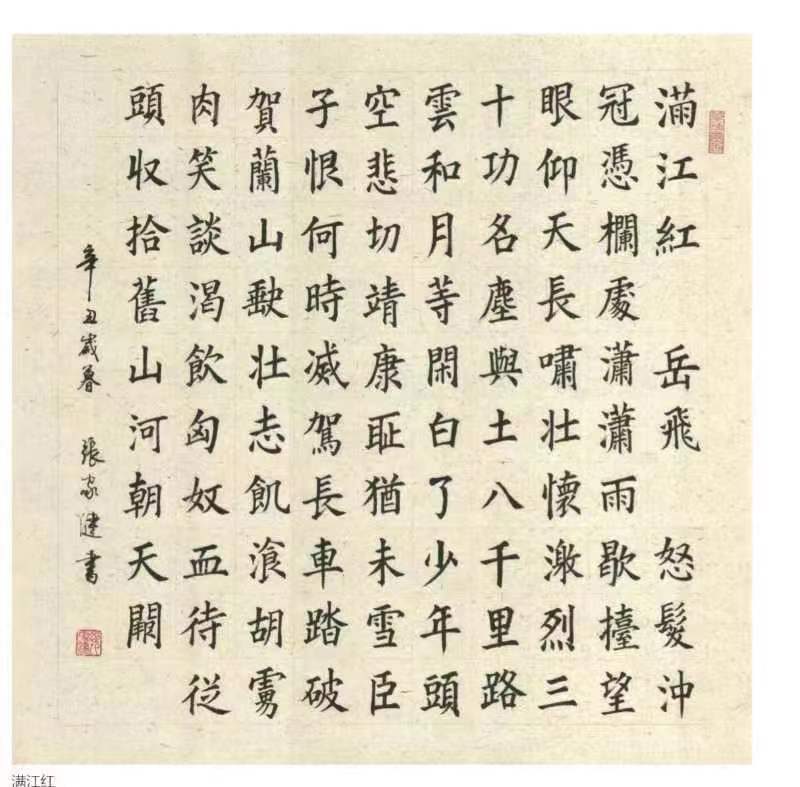 滿江紅 岳飛 怒髮沖
冠憑欄處瀟瀟雨歇檯望
眼仰天長嘯壯懷激烈三
十功名塵與土八千里路
雲和月等閑白了少年頭
空悲切靖康恥猶未雪臣
子恨何時滅駕長車踏破
賀蘭山缺壯志飢湌胡虜
肉笑談渴飲匈奴血待從
頭收拾舊山河朝天闕
辛丑歲暮 張家書
满江红